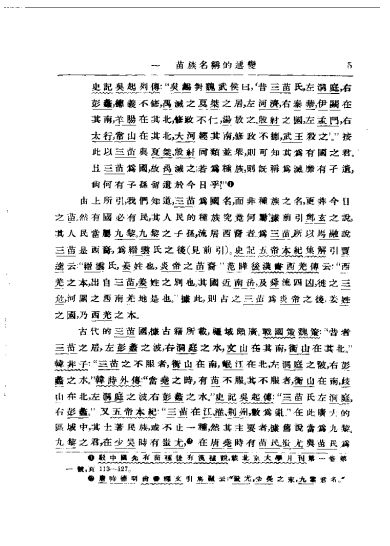 一 苗族名稱的遞變 5
史記吳起列傳:“吳起對魏武侯曰,‘昔三苗氏,左洞庭,右
彭蠡,德義不修,禹滅之.夏桀之居,左河濟,右泰華,伊闕在
其南,羊腸在其北,修政不仁,湯放之.殷紂之國,左孟門,右
太行,常山在其北,大河經其南,修政不德,武王殺之’.”按
此以三苗與夏桀,殷紂同類並舉,則可知其為有國之君.
且三苗為國,故禹滅之;若為種族,則旣稱為滅,尊有子遺,
何有子孫留遺於今日乎?”❶
由上所引,我們知道,三苗為國名,而非種族之名,更非今日
之苗.然有國必有民,其人民的種族究竟何屬?據前引鄭玄之說,
其人民當屬九黎,九黎之子孫,流居西裔者為三苗.所以馬融說
三苗是西裔,為縉雲氏之後(見前引).史記五帝本紀集解引賈
逵云:“縉雲氏,姜姓也,炎帝之苗裔”范曄後漢書西羌傳云:“西
羌之本,出自三苗,姜姓之別也.其國近南岳.及舜流四凶,徙之三
危,河關之西南羌地是也.”據此,則古之三苗為炎帝之後,姜姓
之國,乃西羌之本.
古代的三苗國,據古籍所載,疆域頗廣.戰國策魏策:“昔者
三苗之居,左彭蠡之波,右洞庭之水,文山在其南,衡山在其北.”
韓非子:“三苗之不服者,衡山在南,岷江在北,左洞庭之陂,右彭
蠡之水.”韓詩外傳:“當堯之時,有苗不服,其不服者,衡山在南,岐
山在北,左洞庭之波,右彭蠡之水.”史記吳起傳:“三苗氏左洞庭,
右彭蠡.”又五帝本紀:“三苗在江淮,荆州,數為亂.”在此廣大的
區域中,其土著民族,或不止一種,然其主要者,據舊說當為九黎.
九黎之君,在少昊時有蚩尤,❷在唐堯時有苗民.蚩尤與苗民為
❶ 說中國先有苗種後有漢種說,載北京大學月刊第一卷第
一號,頁 113—127.